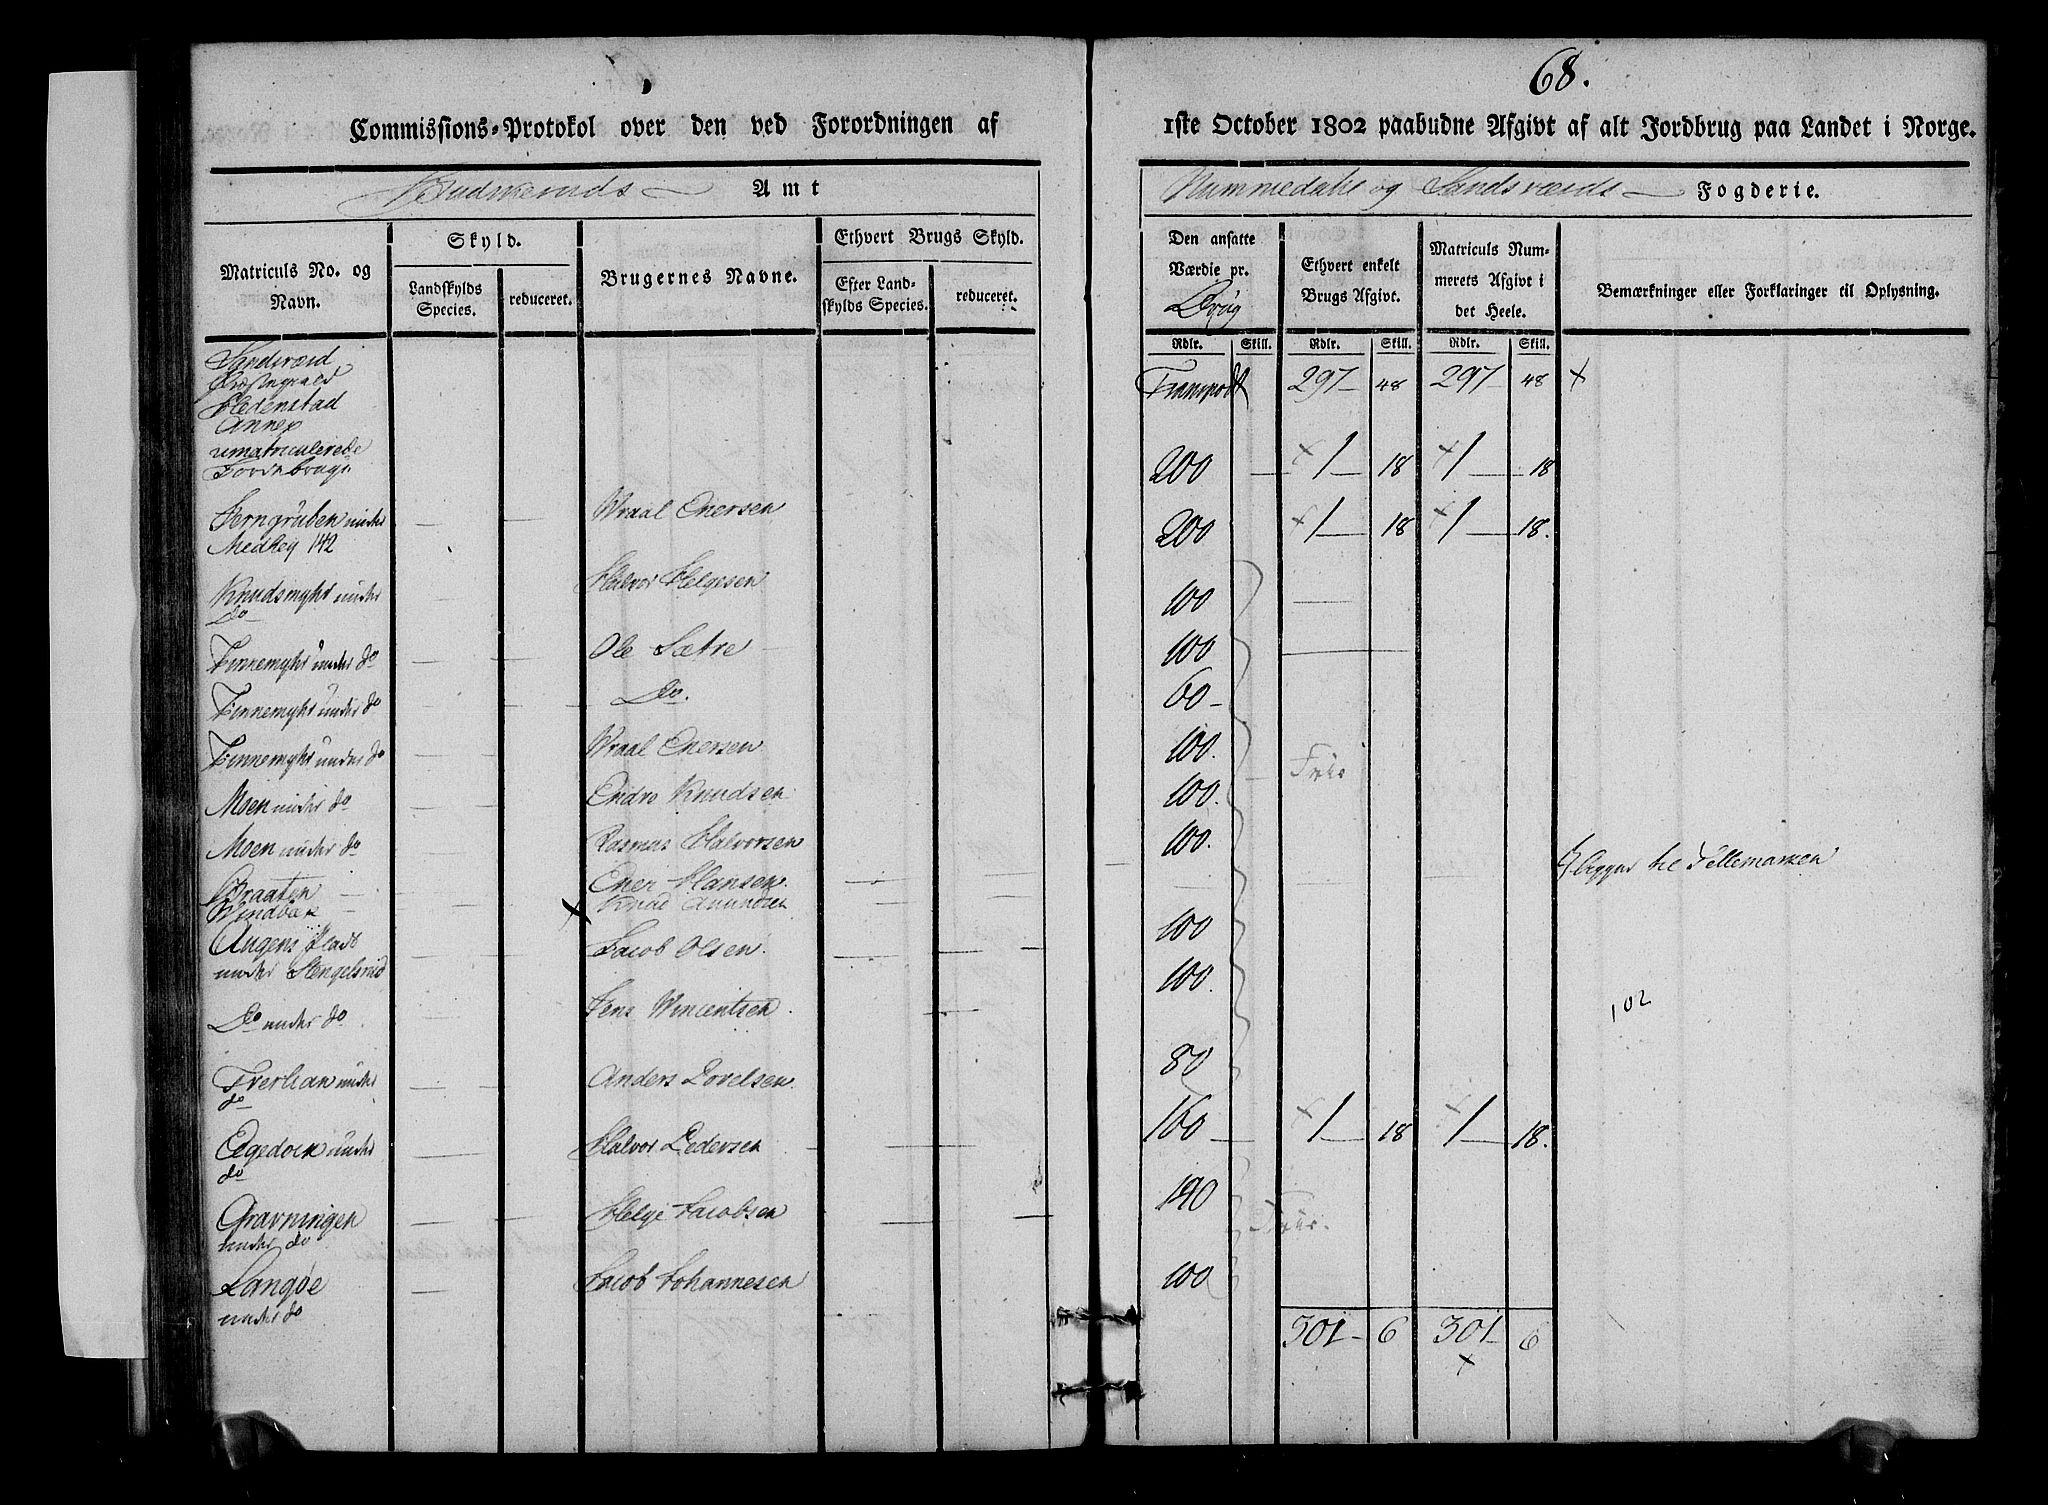 68.
Commissions-Protokol over den ved Forordningen af
1ste October 1802 paabudne Afgivt af alt Jordbrug paa Landet i Norge.
Budskeruds Amt
Nummedals og Sandsværds Fogderie.
Matriculs No. og Navn.
Skyld.
Landskylds Species.
reduceret.
Brugernes Navne.
Ethvert Brugs Skyld.
Efter Landskylds Species.
reduceret.
Den ansatte Værdie pr. Brug
Ethvert enkelt Brugs Afgivt.
Matriculs Nummerets Afgivt i det Heele.
Bemærkninger eller Forklaringer til Oplysning.
Rdlr. Skill. Rdlr. Skill. Rdlr. Skill.
Sandsværd
Præstegield
Hedenstad
Annex
umatriculerede
Jordebruge
Transport 297 48 297 48
200 1 18 1 18
Jerngruben under
Medhey 142
Wraal Enersen
200 1 18 1 18.
Knudsmyhr under
do
Halvor Helgesen
100
Finnemyhr under do
Ole Sætre
100
Finnemyhr under do
Do.
60
Finnemyhr under do
Wraal Enersen
100.
Frie
Moen under do
Endre Knudsen
100.
Moen under do
Rasmus Halvorsen
100.
Braaten
Ener Hansen.
ligger til Tellemarken
Windvæt
Knud Amundsen
100
Augens Plads
under Stengelsrud
Jacob Olsen
100.
Do under do
Jens Wincentsen.
102
80
Tverlian under
do
Anders Povelsen.
160 1 18 1 18.
Egedoen under
do
Halvor Pedersen
140
Gravningen
under do
Helge Jacobsen
Frie.
Langøe
under do
Jacob Johannesen
100
301 6 301 6